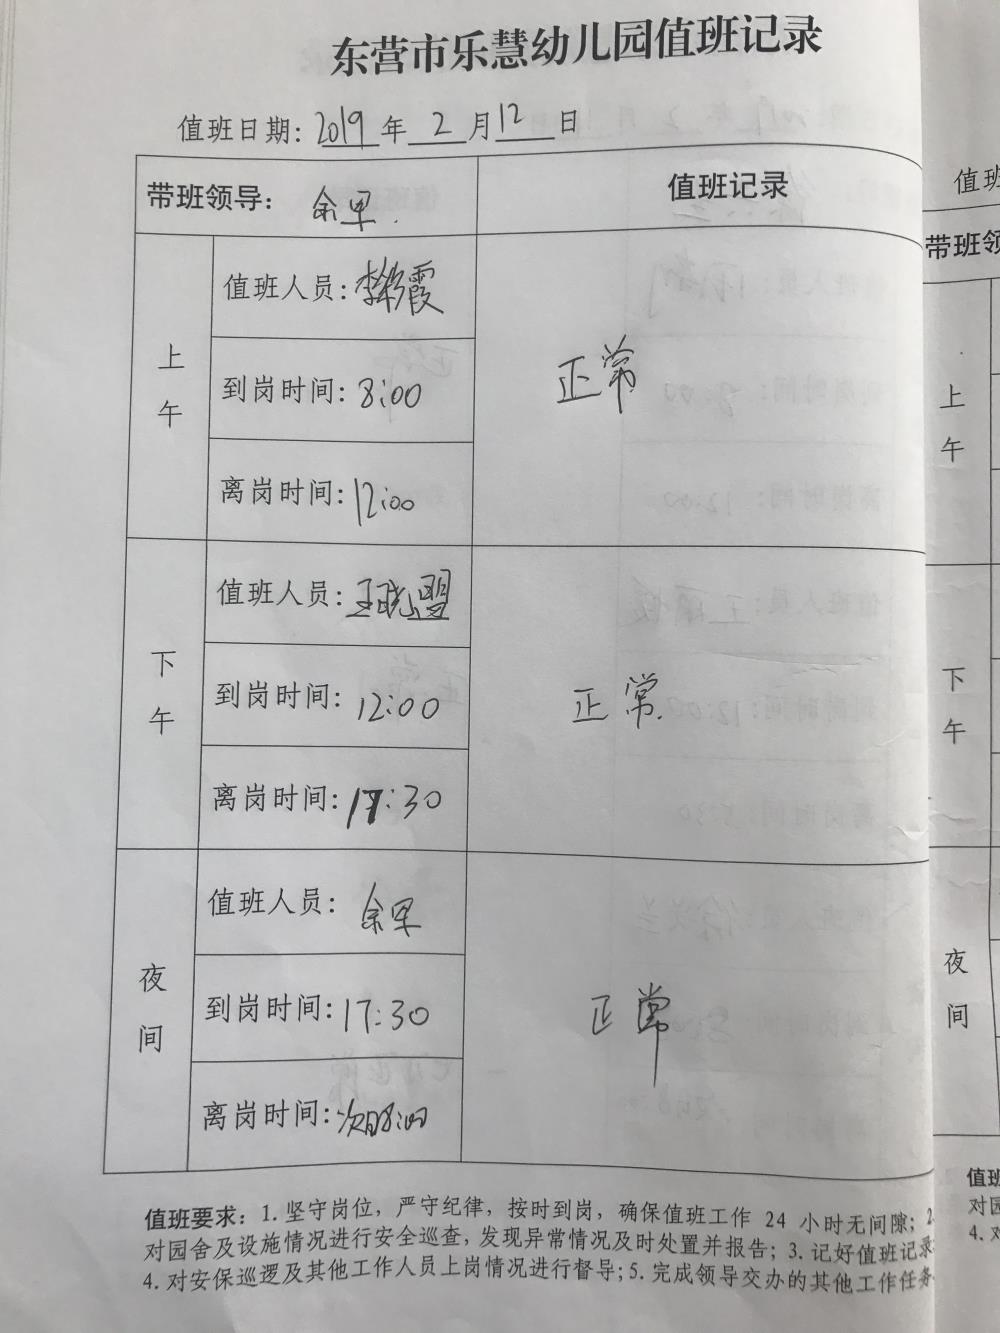 东营市乐慧幼儿园值班记录
值班日期: 2019 年 2 月 12 日
带班领导: 余早.
值班记录
上午
值班人员: 霞
到岗时间: 8:00
离岗时间: 12:00
正常
下午
值班人员: 王晓盟
到岗时间: 12:00
离岗时间: 17:30
正常.
夜间
值班人员: 余早
到岗时间: 17:30
离岗时间: 次日8:00
正常
值班要求: 1. 坚守岗位, 严守纪律, 按时到岗, 确保值班工作 24 小时无间隙; 2
对园舍及设施情况进行安全巡查, 发现异常情况及时处置并报告; 3. 记好值班记录
4. 对安保巡逻及其他工作人员上岗情况进行督导; 5. 完成领导交办的其他工作任务
值班
带班领
上午
下午
夜间
值班
对园
4. 对